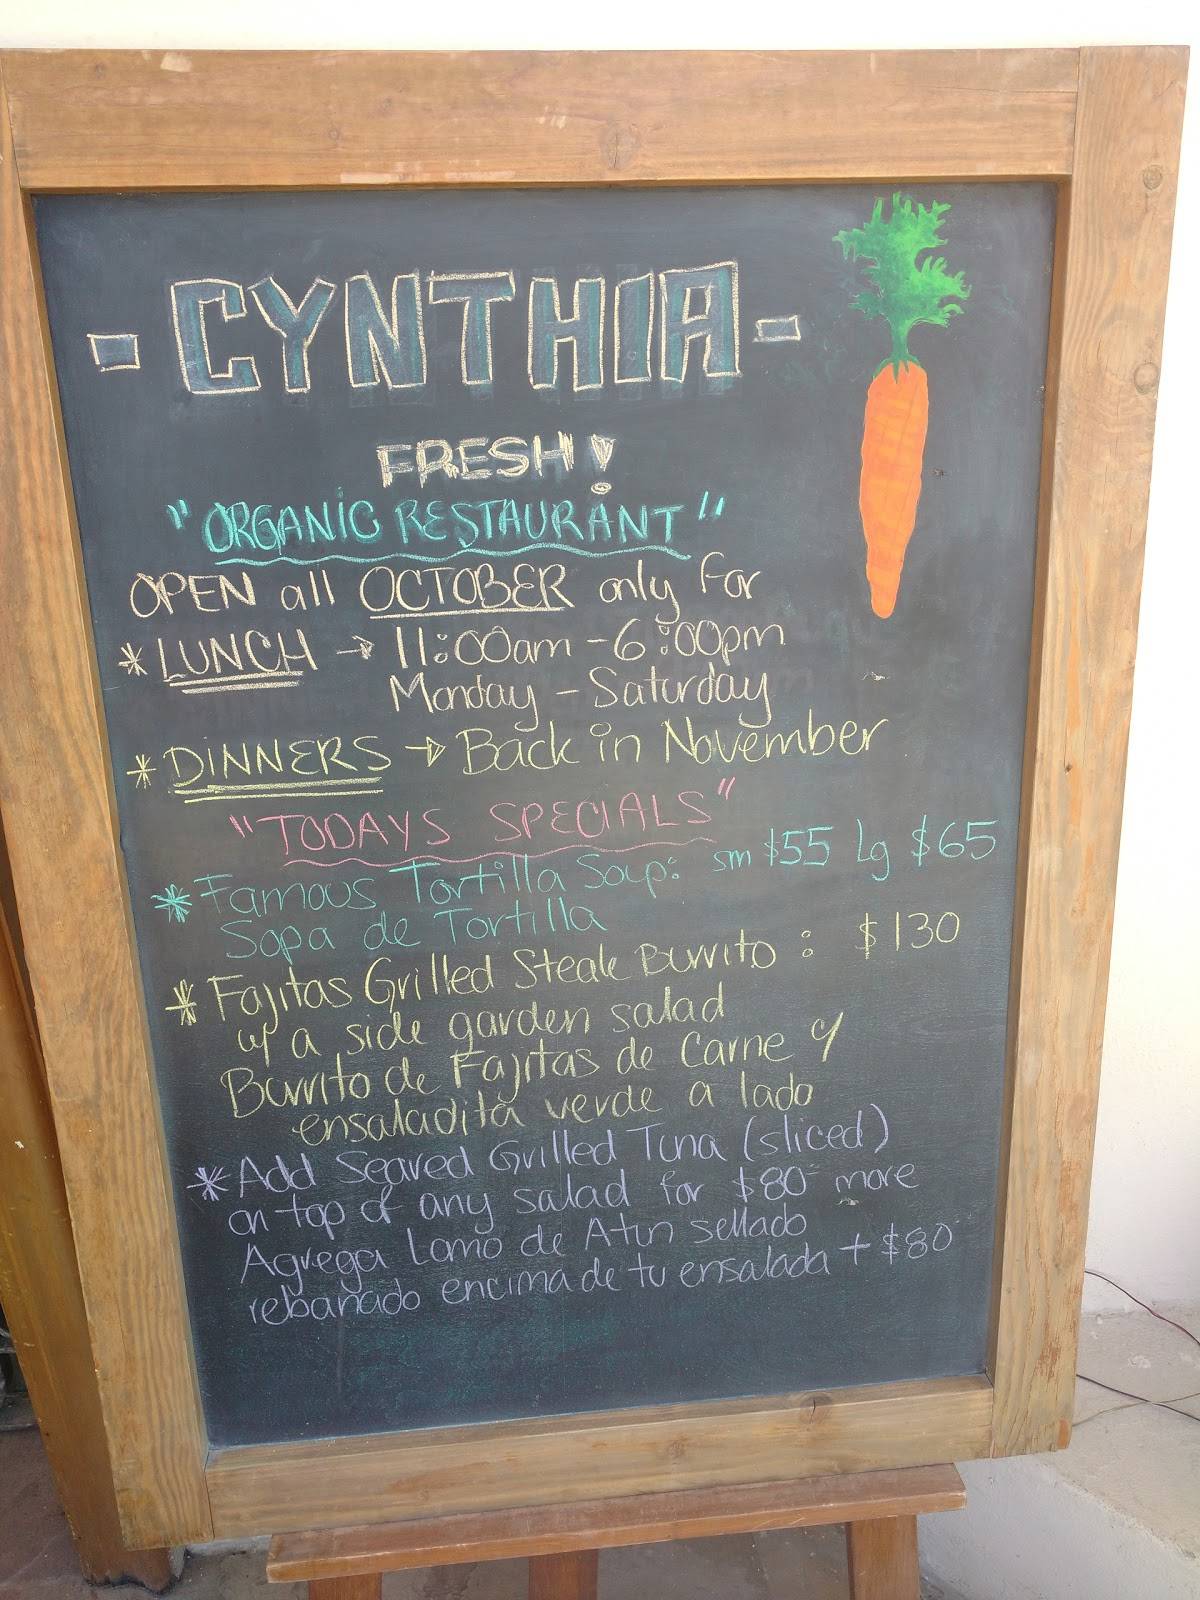 - CYNTHIA -
FRESH!
"ORGANIC RESTAURANT"
OPEN all OCTOBER only for
* LUNCH → 11:00am - 6:00pm
Monday - Saturday
* DINNERS → Back in November
"TODAYS SPECIALS"
* Famous Tortilla Soup: sm $55 Lg $65
Sopa de Tortilla
* Fajitas Grilled Steak Burrito : $130
w/ a side garden salad
Burrito de Fajitas de Carne c/
ensaladita verde a lado
* Add Seared Grilled Tuna (sliced)
on top of any salad for $80 more
Agrega Lomo de Atun sellado
rebanado encima de tu ensalada + $80